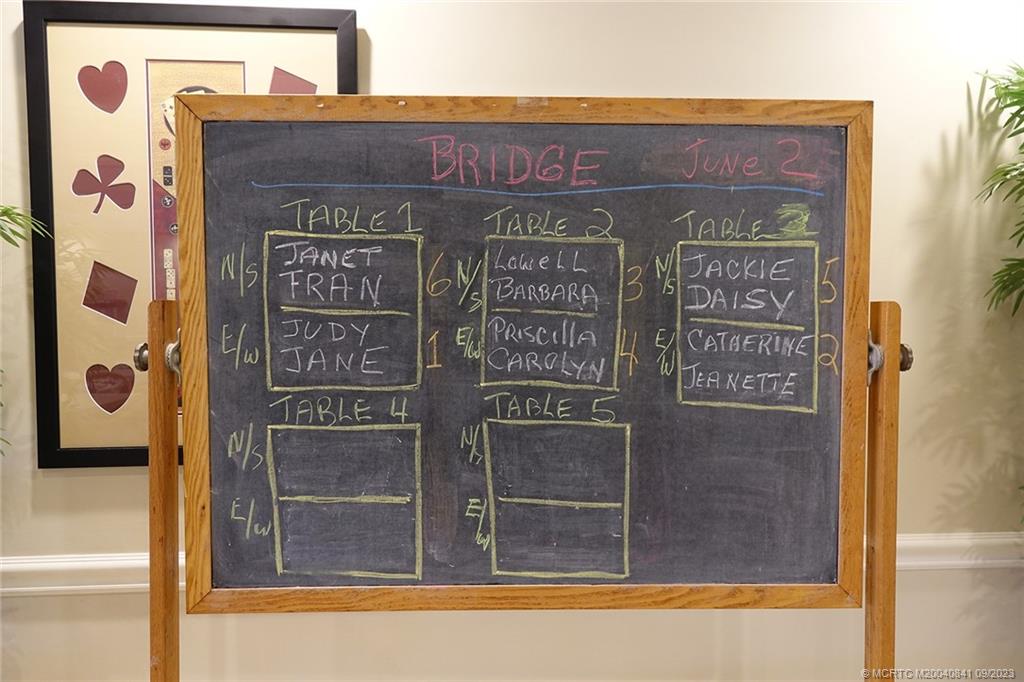 BRIDGE JUNE 2
TABLE 1
N/S JANET
FRAN 6
E/W JUDY
JANE 1
TABLE 2
N/S LOWELL
BARBARA 3
E/W PRISCILLA
CAROLYN 4
TABLE 3
N/S JACKIE
DAISY 5
E/W CATHERINE 2
JEANETTE
TABLE 4
N/S
E/W
TABLE 5
N/S
E/W
© MCRTC M20040841 09/2023